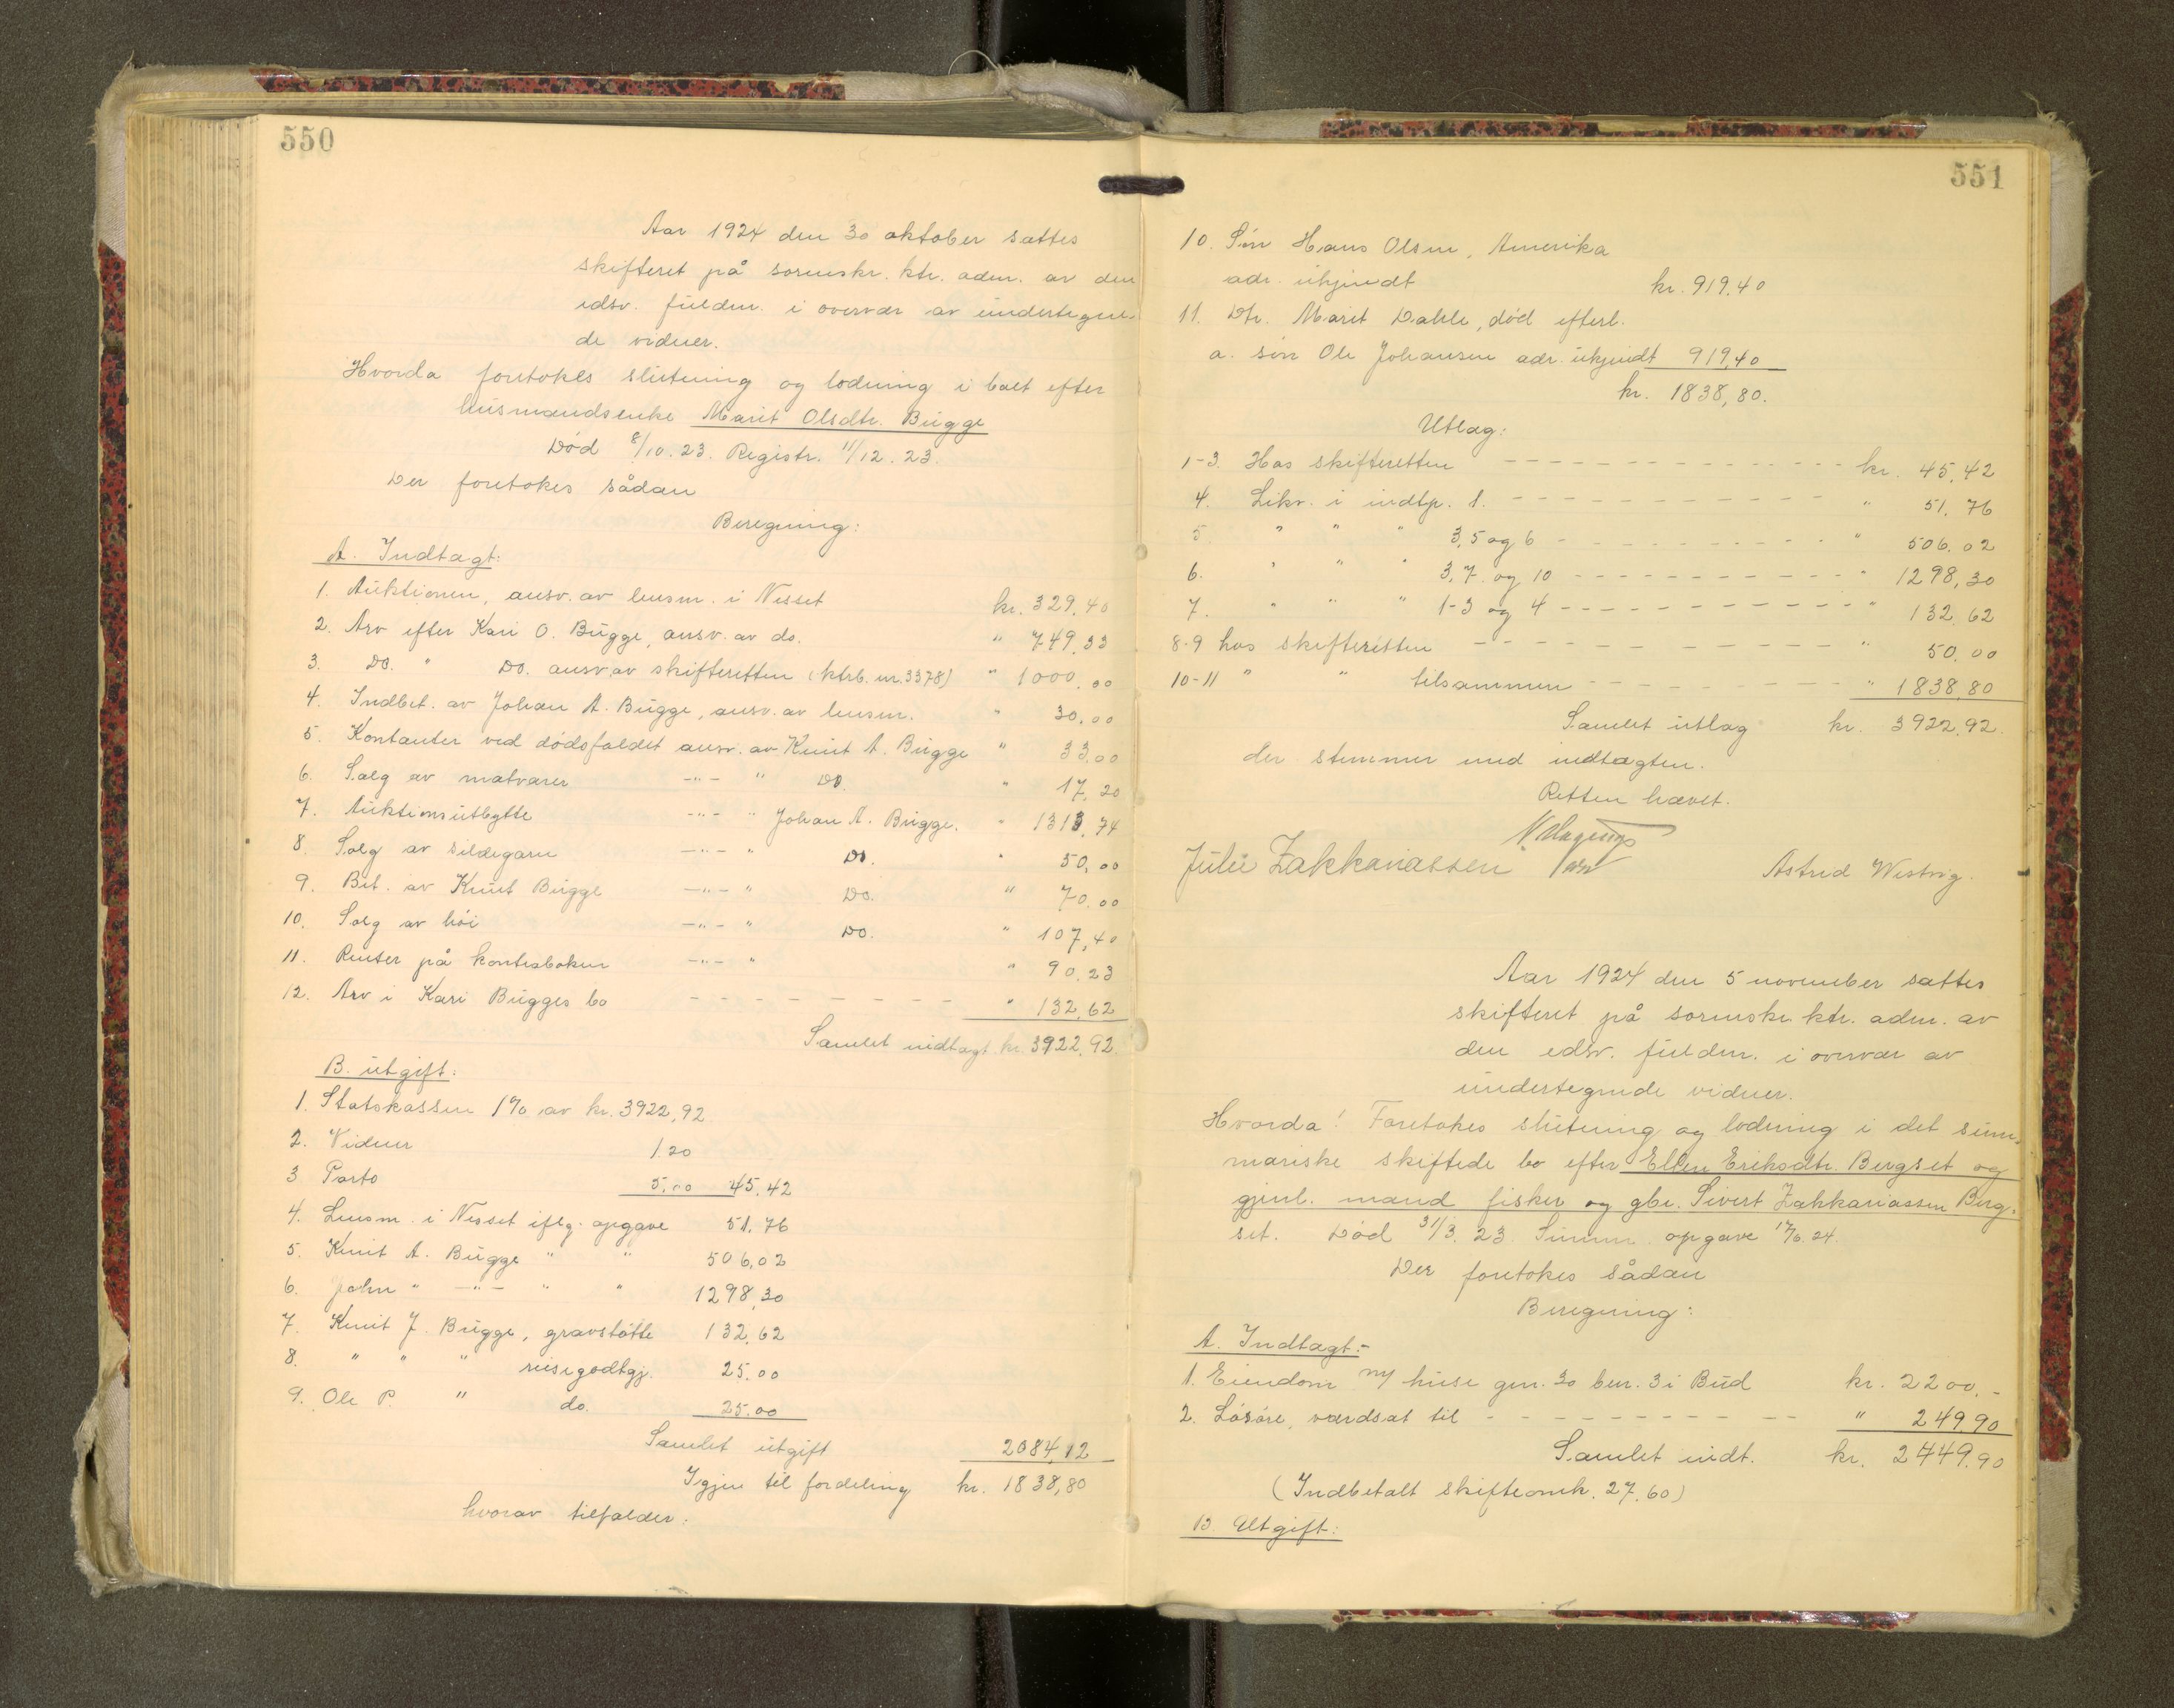 550
Aar 1924 den 30 oktober sattes
skifteret på sorenskr. ktr. adm. av den
edsv. fuldm. i overvær av undertegne-
de vidner.
Hvorda foretokes slutning og lodning i boet efter
husmandsenke Marit Olsdtr. Bugge
Død 8/10.23. Registr. 11/12.23.
Der foretokes sådan
Beregning:
A. Indtagt:
1. Auktionen, ansv. av lensm. i Nesset kr. 329,40
2. Arv efter Kari O. Bugge, ansv. av do. " 749,33
3. Do. " Do. ansv av skifteretten (ktrb. nr. 3378) " 1000,00
4. Indbet. av Johan A. Bugge, ansv. av lensm. " 30.00
5. Kontanter ved dødsfaldet ansv. av Knut A. Bugge " 33.00
6. Salg av matvarer -"- " Do. " 17,20
7. Auktionsutbytte -"- " Johan A. Bugge. " 1313,74
8. Salg av sildegarn -"- " Do. " 50,00
9. Bet. av Knut Bugge -"- " Do. " 70.00
10. Salg av høi -"- " Do. " 107,40
11. Renter på kontrabøken -"- " " 90.23
12. Arv i Kari Bugges bo - - - - - - - - " 132,62
Samlet indtagt kr. 3922,92
B. utgift:
1. Statskassen 1% av kr. 3922,92
2. Vidner 1.20
3 Porto 5.00 45,42
4. Lensm. i Nesset iflg. opgave 51.76
5. Knut A. Bugge " " 506,02
6. John " -"- " " 1298,30
7. Knut J. Bugge, gravstøtte 132,62
8. " " " reisegodtgj. 25.00
9. Ole P. " do. 25.00
Samlet utgift 2084,12
Igjen til fordeling kr. 1838,80
hvorav tilfalder:
551
10. Søn Hans Olsen, Amerika
adr. ukjendt kr. 919,40
11. Dtr. Marit Dahle, død efterl.
a. søn Ole Johansen adr. ukjendt 919,40
kr. 1838,80.
Utlag:
1-3. Hos skifteretten - - - - - - - - kr. 45,42
4. Likv. i indtp. 1. - - - - - - - - " 51,76
5. " " " 3,5 og 6 - - - - - - - " 506.02
6. " " " 3,7 og 10 - - - - - - - " 1298,30
7. " " " 1-3 og 4 - - - - - - - " 132,62
8-9 hos skifteretten - - - - - - - " 50.00
10-11 " " tilsammen - - - - - - - " 1838,80
Samlet utlag kr. 3922,92.
der stemmer med indtægten.
Retten hævet.
Julie Zakkariassen Astrid Westvig.
Aar 1924 den 5 november sattes
skifteret på sorenskr. ktr. adm. av
den edsv. fuldm. i overvær av
undertegnede vidner.
Hvorda! Foretokes slutning og lodning i det sum-
mariske skiftede bo efter Ellen Eriksdtr. Bergset og
gjenl. mand fisker og gbr. Sivert Zakkariassen Berg-
set. Død 31/3.23. Summ. opgave 17/6.24.
Der foretokes sådan
Beregning:
A. Indtagt:-
1. Eiendom m/ huse gnr. 30 bnr. 3 i Bud kr. 2200.-
2. Løsøre, værdsat til - - - - - - - - " 249.90
Samlet indt. kr. 2449.90
(Indbetalt skifteomk. 27.60)
B. Utgift: